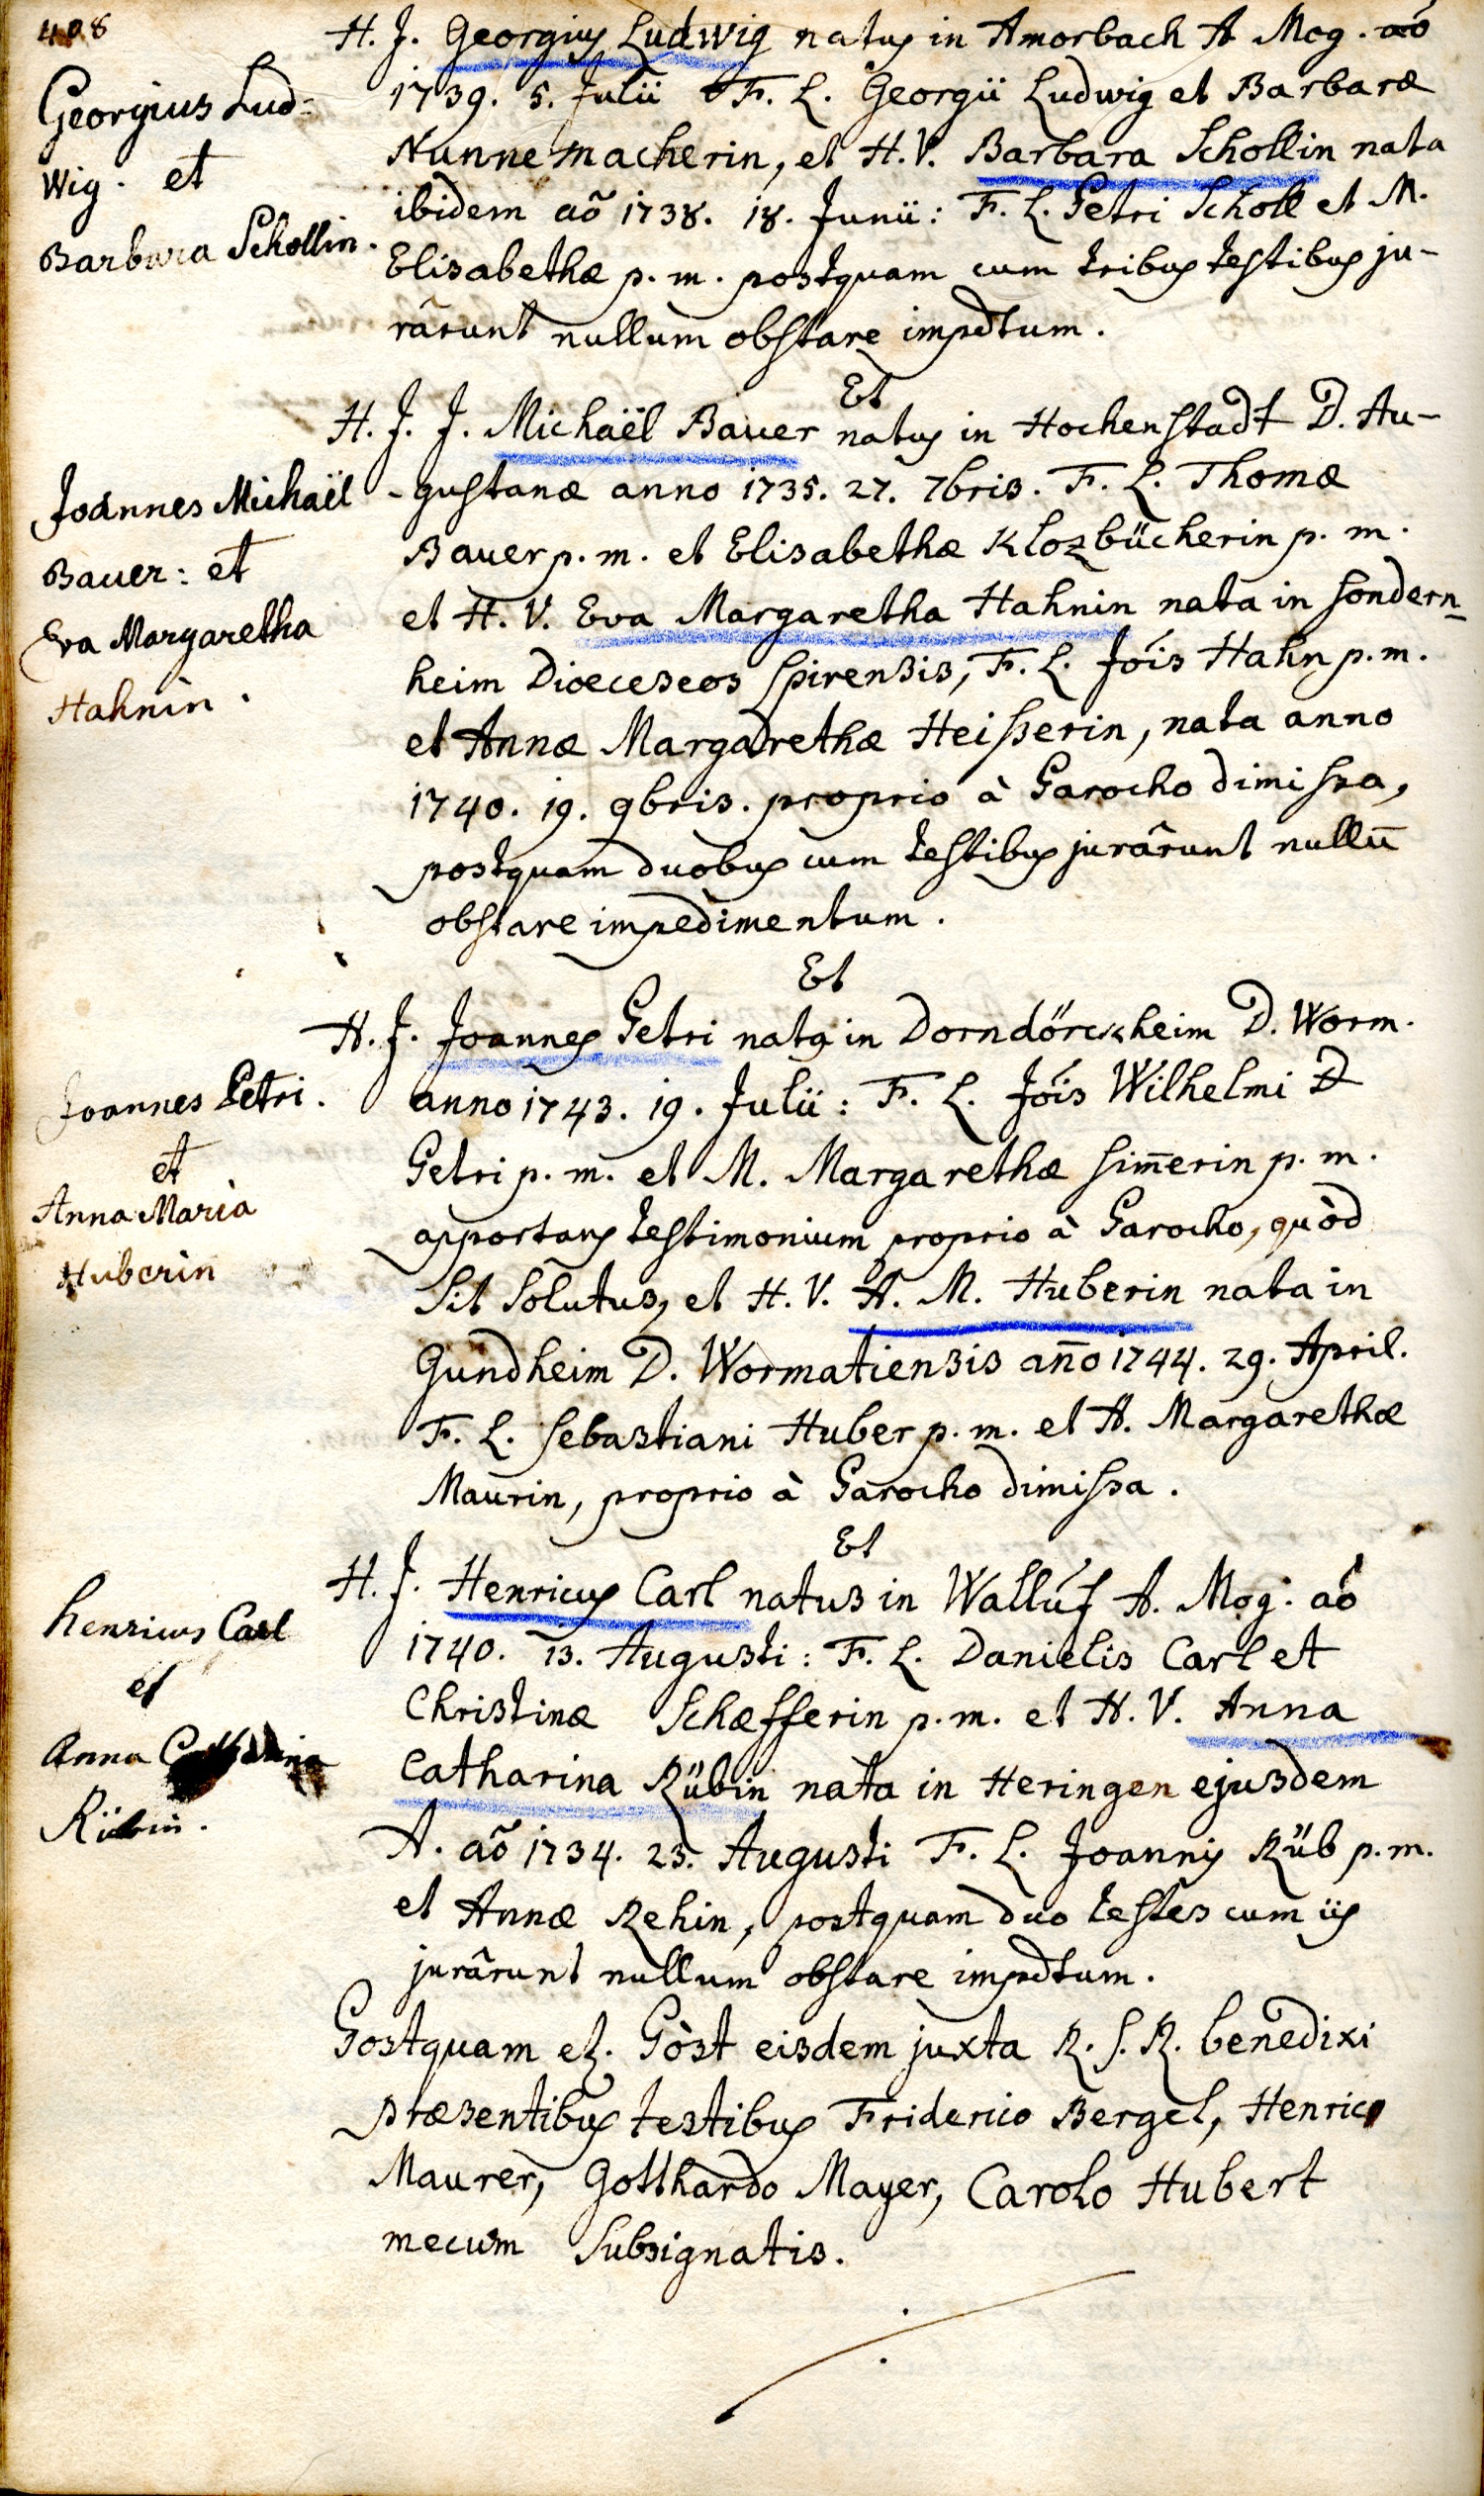 408
Georgius Lud=
wig. et
Barbara Schollin.
H. J. Georgius Ludwig natus in Amorbach A Mog. aó
1739. 5. Julii F. L. Georgii Ludwig et Barbaræ
Nunnemacherin, et H. V. Barbara Schollin nata
ibidem aõ 1738. 18. Junii: F. L. Petri Scholl et M.
Elisabethæ p. m. postquam cum tribus testibus ju-
rârunt nullum obstare impdtum.
Et
Joannes Michaël
Bauer: et
Eva Margaretha
Hahnin.
H. J. J. Michaël Bauer natus in Hochenstadt D. Au-
-gustanæ anno 1735. 27. 7bris. F. L. Thomæ
Bauer p. m. et Elisabethæ Klozbücherin p. m.
et H. V. Eva Margaretha Hahnin nata in Sondern-
heim Dioeceseos Spirensis, F. L. Jóis Hahn p. m.
et Annæ Margarethæ Heisserin, nata anno
1740. 19. 9bris. proprio à Parocho dimissa,
postquam duobus cum testibus jurârunt nullū
obstare impedimentum.
Et
Joannes Petri.
et
Anna Maria
Huberin
H. J. Joannes Petri natq in Dorndörckheim D. Worm.
anno 1743. 19. Julii: F. L. Jóis Wilhelmi
Petri p. m. et M. Margarethæ Sim̄erin p. m.
apportans testimonium proprio à Parocho, quòd
Sit Solutus, et H. V. A. M. Huberin nata in
Gundheim D. Wormatiensis an̄o 1744. 29. April.
F. L. Sebastiani Huber p. m. et A. Margarethæ
Maurin, proprio à Parocho dimissa.
Et
Henricus Carl
et
Anna Catharina
Rübin.
H. J. Henricus Carl natus in Walluf A. Mog. aó
1740. 13. Augusti: F. L. Danielis Carl et
Christinæ Schæfferin p. m. et H. V. Anna
Catharina Rübin nata in Heringen ejusdem
A. aõ 1734. 23. Augusti F. L. Joannis Rüb p. m.
et Annæ Rehin, postquam duo testes cum iis
jurârunt nullum obstare impdtum.
Postquam et. Pòst eisdem juxta R. S. R. benedixi
præsentibus testibus Friderico Bergel, Henrico
Maurer, Gotthardo Mayer, Carolo Hubert
mecum Subsignatis.